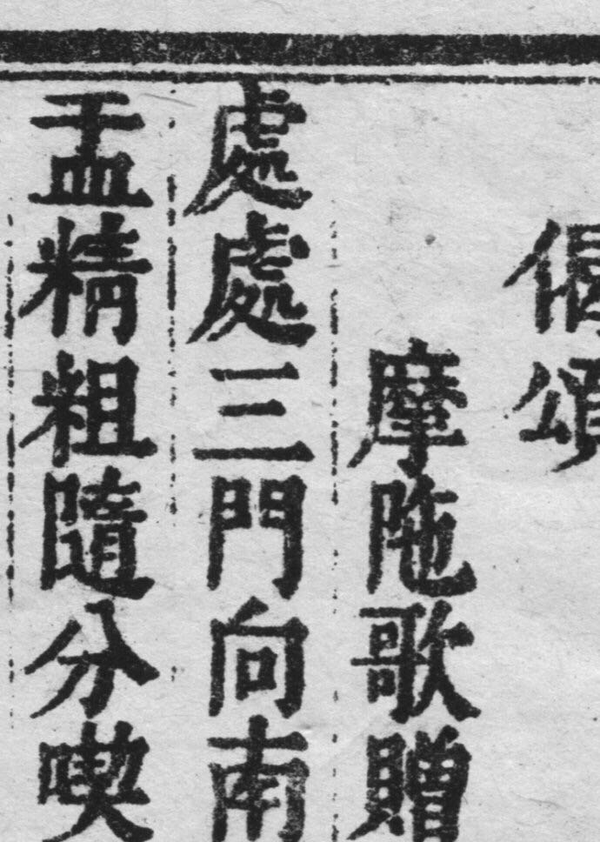 偈頌
摩陁歌贈
處處三門向南
盂精粗隨分喫